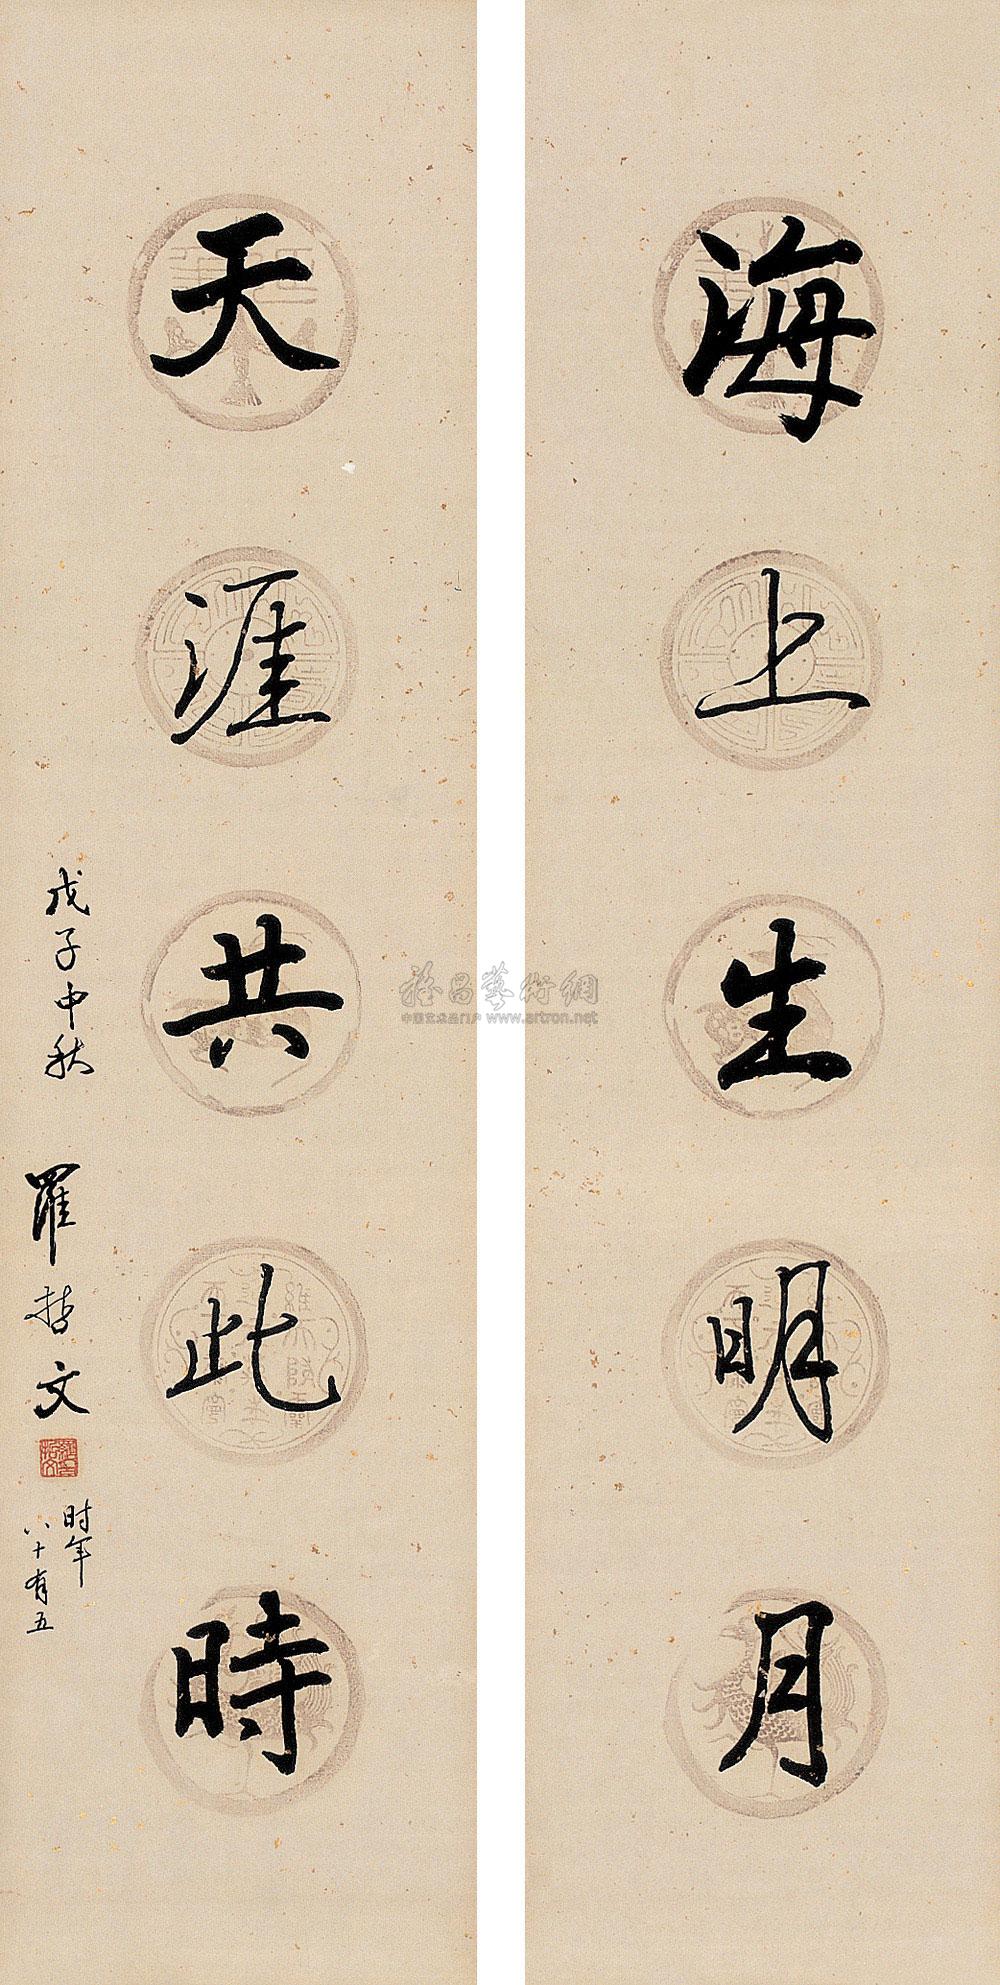 海上生明月
天涯共此時
戊子中秋
羅哲文
时年
八十有五
中国艺术品门户 www.artron.net